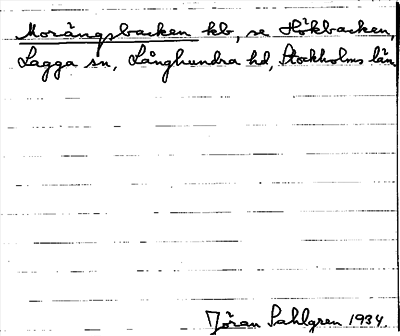 Morängsbacken kb, se Hökbacken,
Lagga sn, Långhundra hd, Stockholms län
Jöran Sahlgren 1934